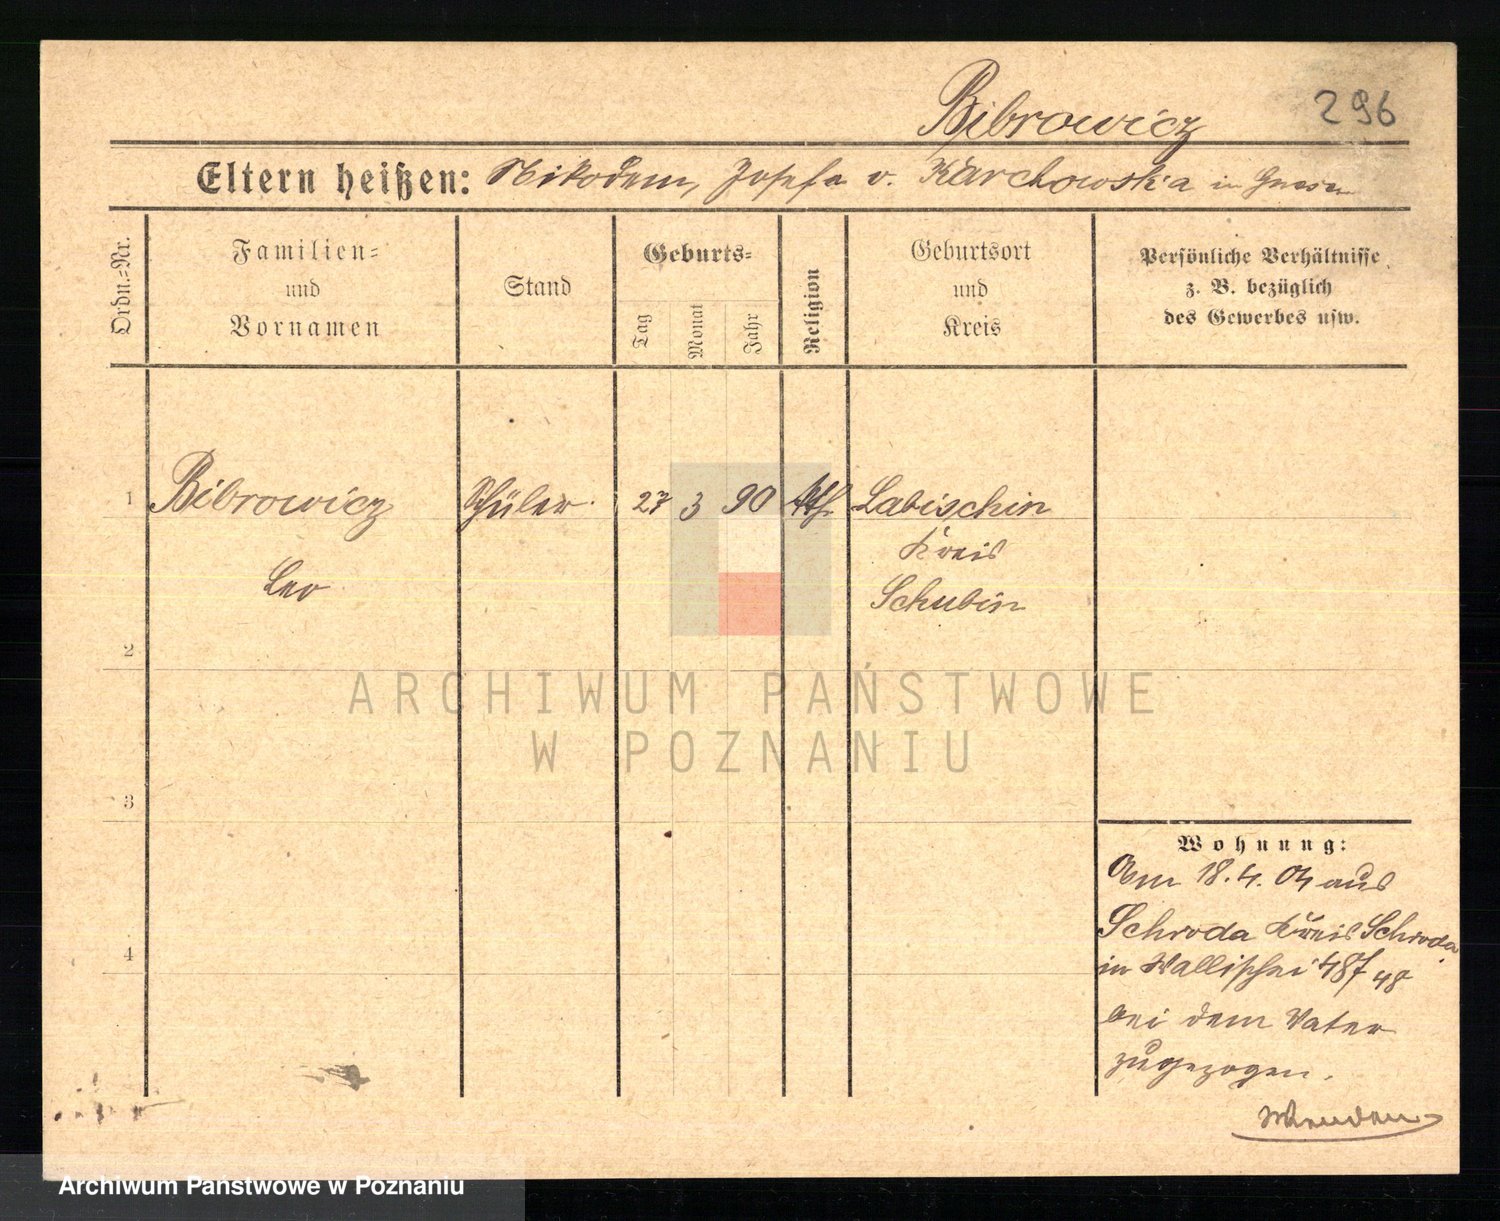 Bibrowicz 296
Eltern heißen: Nikodem, Josefa v. Karchowska in Gnesen
Ordn.-Nr.
Familien-
und
Vornamen
Stand
Geburts-
Tag
Monat
Jahr
Religion
Geburtsort
und
Kreis
Persönliche Verhältnisse
z. B. bezüglich
des Gewerbes usw.
1 Bibrowicz Schüler 27 3 90 kth Labischin
Kreis
Leo
Schubin
2
3
4
Wohnung:
Am 18.4.04 aus
Schroda Kreis Schroda
in Wallischei 48
bei dem Vater
zugezogen.
Wenden
ARCHIWUM PAŃSTWOWE
W POZNANIU
Archiwum Państwowe w Poznaniu